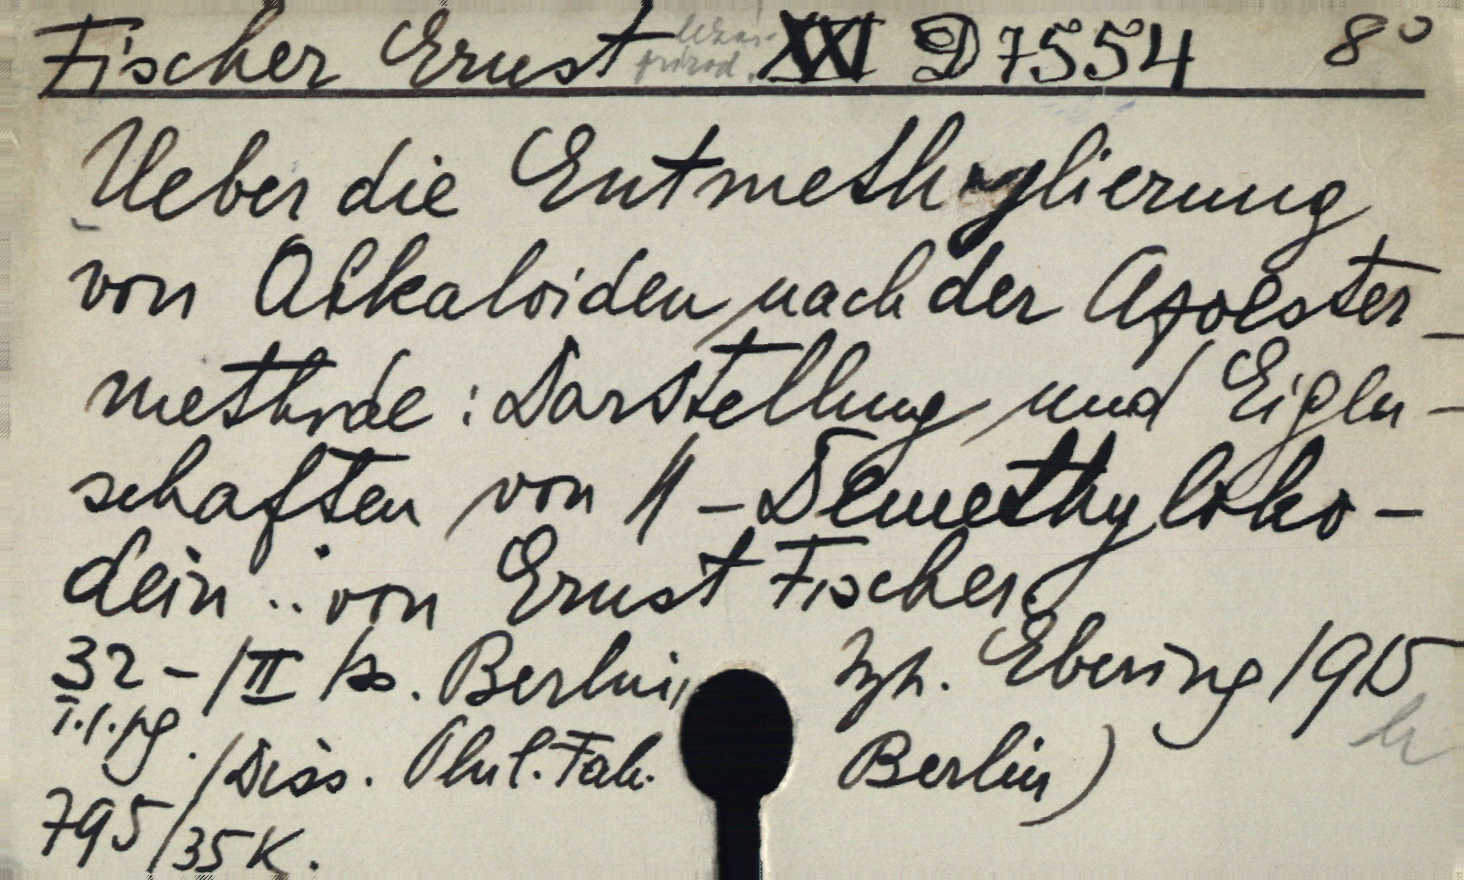 Fischer Ernst XXI D 7554 8°
Ueber die Entmethylierung
von Alkaloiden nach der Azoester-
methode: Darstellung und Eigen-
schaften von N-Demethyloko-
dein .. von Ernst Fischer.
32 - /II /s. Berlin, Ebering 1915
/Diss. Phil. Fak. Berlin)
795/35 K.